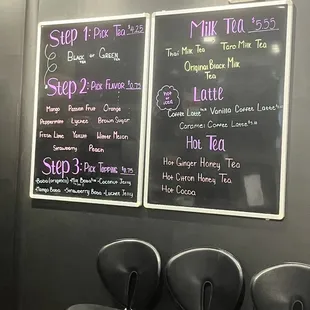 Step 1: Pick Tea $4.25
Black or Green
Tea
Step 2: Pick Flavor $0.75
Mango Passion Fruit Orange
Peppermint Lychee Brown Sugar
Fresh Lime Yakult Winter Melon
Strawberry Peach
Step 3: Pick Topping $0.75
Mango Boba Strawberry Boba
Coconut Jelly
Lychee Jelly
Milk Tea $5.55
Thai Milk Tea Taro Milk Tea
Original Black Milk
Tea
Latte
Coffee Latte Vanilla Coffee Latte
Caramel Coffee Latte
Hot Tea
Hot Ginger Honey Tea
Hot Citron Honey Tea
Hot Cocoa